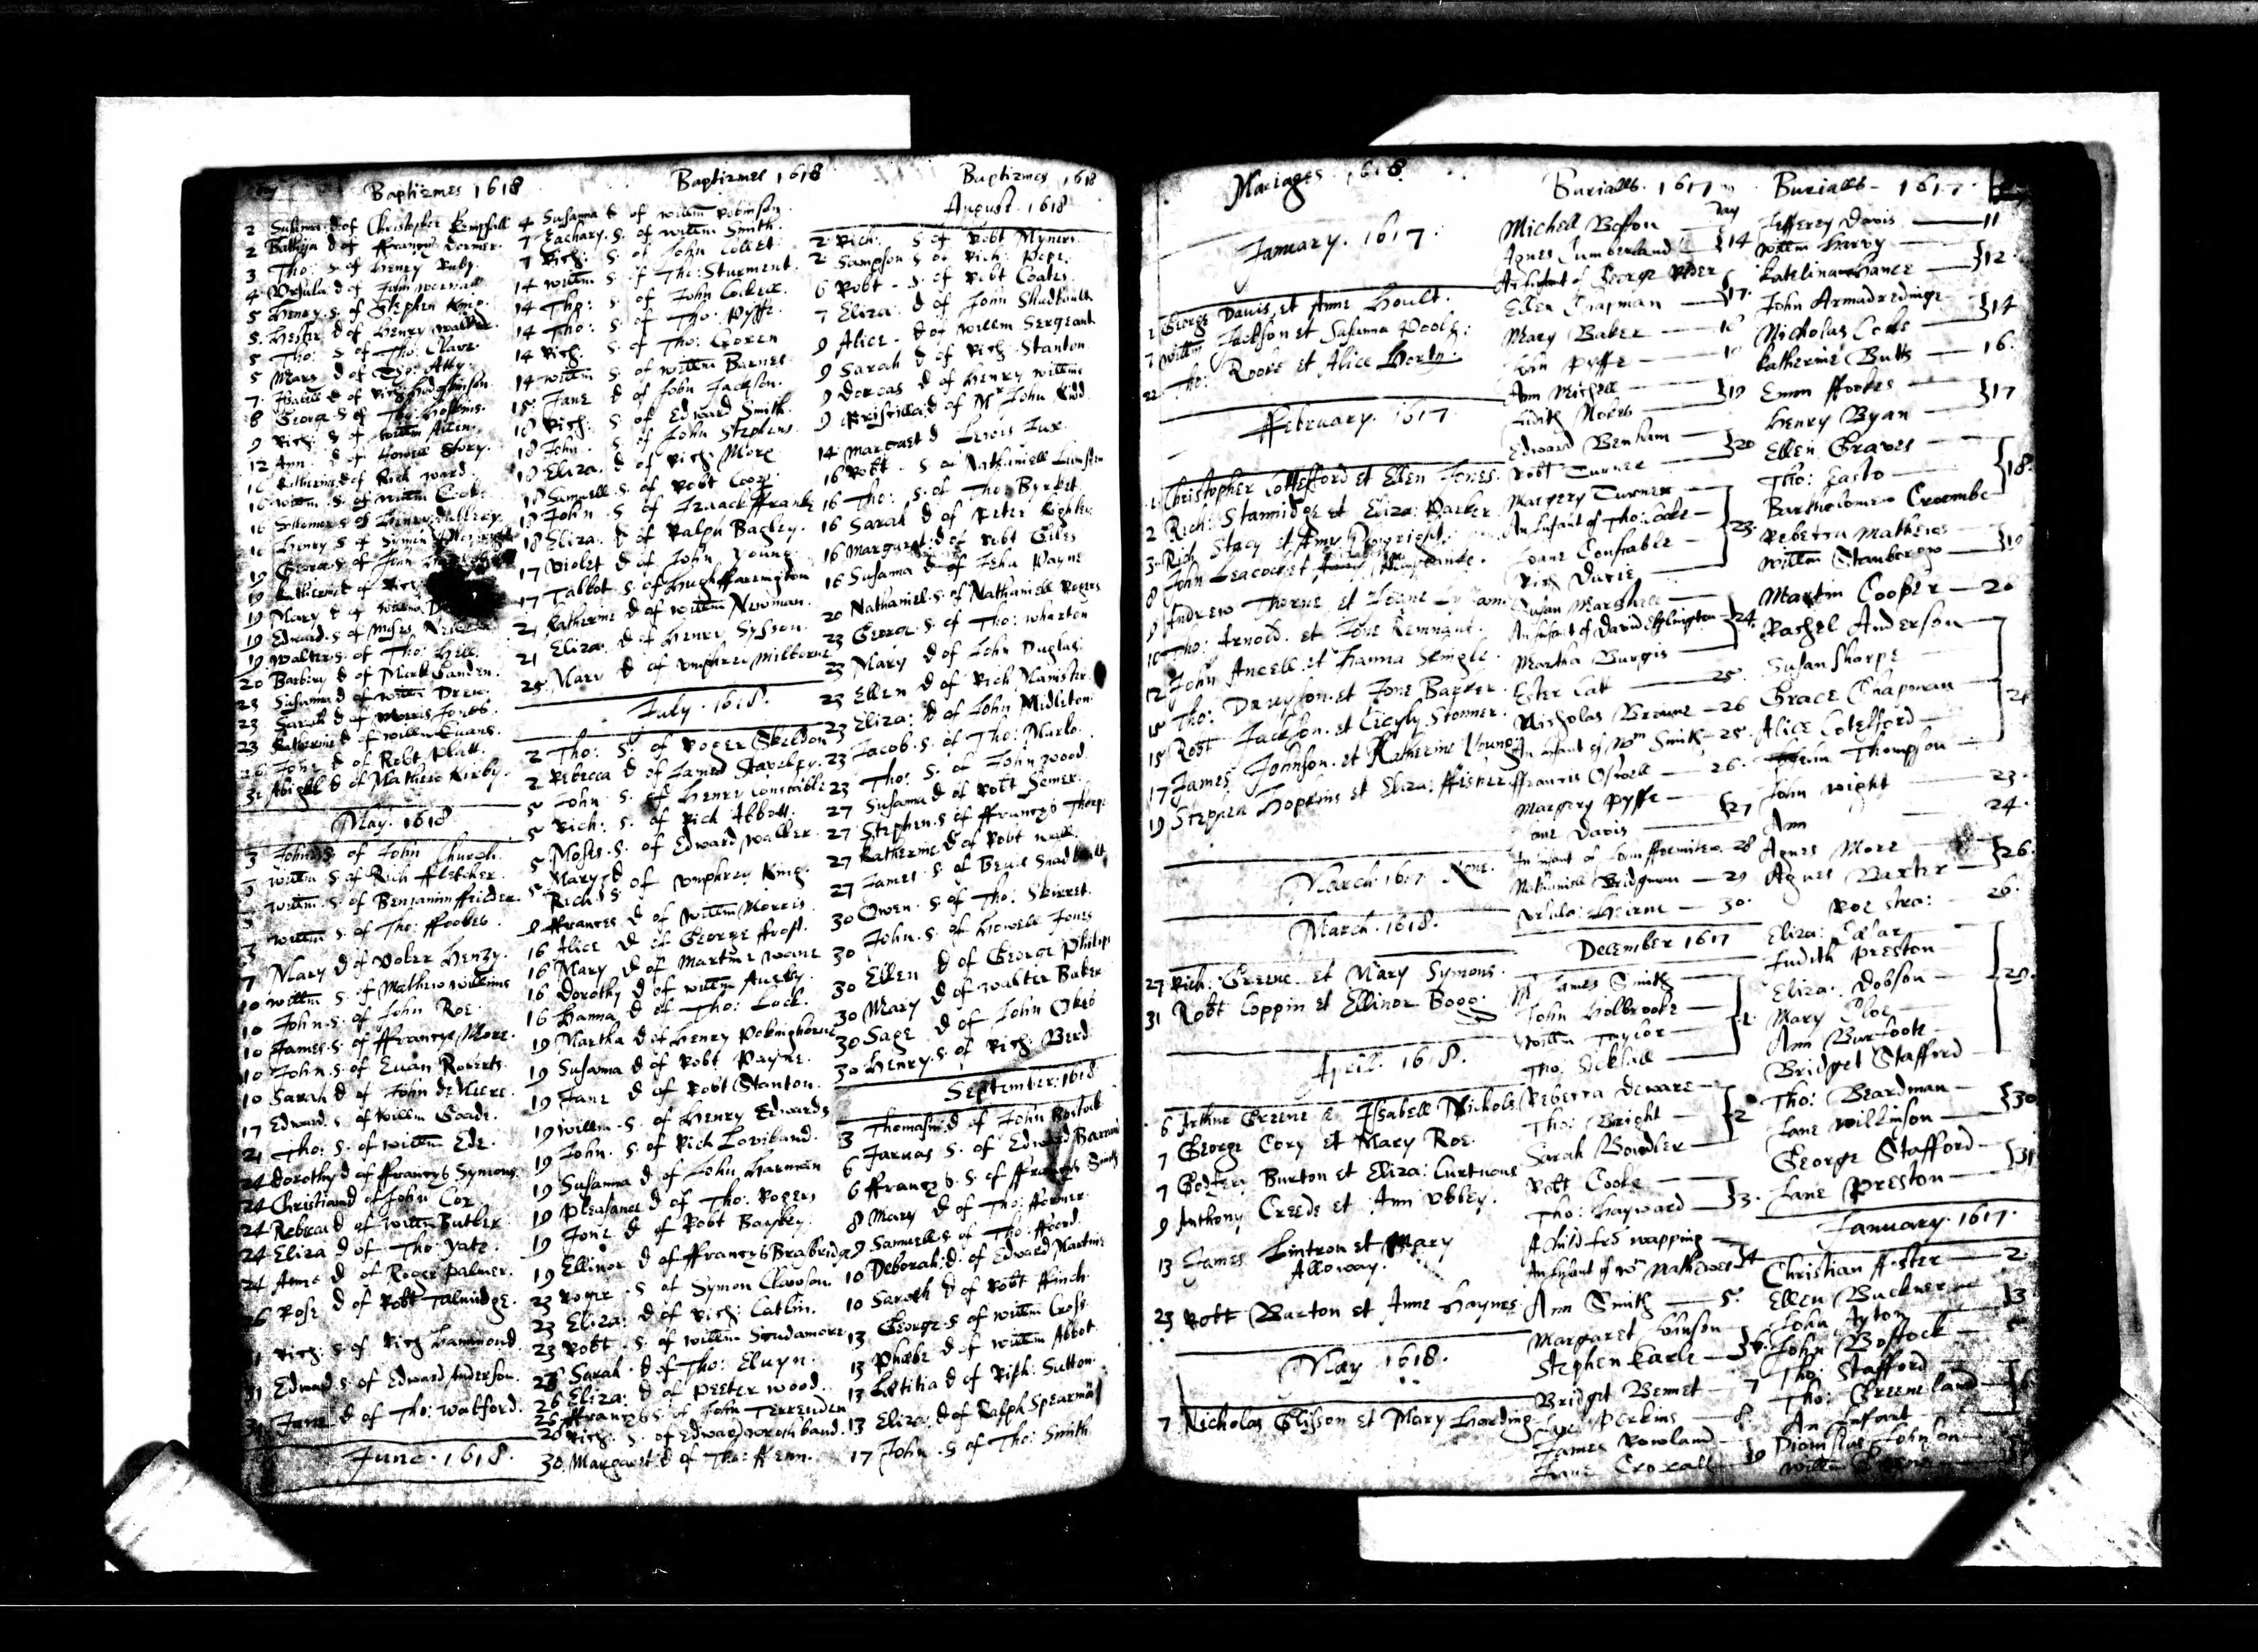 Baptizmes 1618
2 Susanna d of Christopher Kempsall
2 Bathija d of ffrancys Dormer.
3 Tho: S of Henry Ruby.
4 Vrsula d of John
5 Henry S. of Stephen King.
5 Hester d of Henry Walker.
5 Tho: S of Tho: Clare.
5 Mary d of Tho: Atty.
7 Isabell d of Rich Hodgkinson.
8 George S of Tho: Hoskins.
9 Rich: S of Willm Allen.
12 Ann d of Howell Story.
16 Katherine d of Rich Ward.
16 Willm S. of Willm Cooke
16 S of Henry
16 Henry S of Symon
19 George S of John
19 Katherine d of Rich
19 Mary d of Willm
19 Edward S of Moses
19 Walter S. of Tho: Hill.
20 Barbery d of Mark Landen.
23 Susanna d of Willm Drew.
23 Sarah d of Morris Jones.
23 Katherine d of Willm Euans.
26 Jone d of Robt Platt.
31 Abigall d of Mathew Kirby.
May. 1618
3 John S. of John Church.
3 Willm S. of Rich ffletcher.
3 Willm. S. of Benjamin ffeilder.
3 Willm S. of Tho: ffookes.
7 Mary d of Henzy.
10 Willm S. of Mathew Willms
10 John. S. of John Roe.
10 James. S. of ffrancys More.
10 John. S. of Euan Roberts.
10 Sarah d of John de Weere.
17 Edward S. of Willm Goade.
21 Tho: S. of Willm Ede.
24 Dorothy d of ffrancys Symons.
24 Christian d of John Cox
24 Rebecca d of Willm Butler.
24 Eliza d of Tho: Yate.
24 Anne d of Roger Palmer.
26 Rose d of Robt Talmidge.
31 Rich: S. of Rich Hammond.
31 Edward S. of Edward Anderson.
31 Jane d of Tho: Watford.
June. 1618.
Baptizmes 1618
4 Susanna d of Willm Robinson.
7 Zachary. S. of Willm Smith.
7 Rich: S. of John Collet.
14 Willm S of Tho: Sturment.
14 Tho: S. of John Cocker.
14 Tho: S. of Tho: Pyffe.
14 Rich: S of Tho: Goren
14 Willm S of Willm Barnes.
15 Jane d of John Jackson.
18 Rich: S. of Edward Smith.
18 John. S. of John Stephens.
18 Eliza. d of Rich: More
18 Samuell. S. of Robt Coop
18 John. S. of Izaack ffranke
18 Eliza. d of Ralph Bagley.
17 Violet d of John Young.
17 Talbot S. of Hugh ffarington
21 Katherine d of Willm Newman.
21 Eliza. d of Henry Sysson.
25 Mary d of Vmphrey Milborne
July. 1618.
2 Tho: S. of Roger Skeldon
2 Rebecca d of James Staveley.
5 John. S. of Henry Constable
5 Rich: S. of Rich Abbott.
5 Moses. S. of Edward Walker.
5 Mary d of Vmphrey King.
5 Rich S
8 ffrances d of Willm Morris.
16 Alice d of George ffrost.
16 Mary d of Martine Wane
16 Dorothy d of Willm
16 Hanna d of Tho: Lock.
19 Martha d of Henry Pekinghorne
19 Susanna d of Robt Payne.
19 Jane d of Robt Stanton.
19 Willm. S. of Henry Edwards
19 John. S. of Rich Loviband.
19 Susanna d of John Harman
19 Pleasance d of Tho: Rogers
19 Jone d of Robt Bayley.
19 Ellinor d of ffrancys Brasbridge
23 Roger S of Symon Clawson.
23 Eliza: d of Rich: Catlin.
23 Robt. S. of Willm Scudamore
26 Sarah d of Tho: Eluyn.
26 Eliza: d of Peeter Wood.
26 ffrancys S of John Terrenden
26 Rich: S. of Edward Brokband.
30 Margaret d of Tho: ffenn.
Baptizmes 1618
August. 1618
2 Rich. S of Robt Myners.
2 Sampson S of Rich: Pope.
6 Robt. S. of Robt Coates.
7 Eliza. d of John Shudboult
9 Alice d of Willm Sergeant
9 Sarah d of Rich: Stanton.
9 Dorcas d of Henry Willms
9 Priscilla d of Mr John Kidd.
14 Margaret d Lewis Lux.
16 Robt S of Nathaniell Lumsden
16 Tho: S. of Tho: Byrket.
16 Sarah d of Peter Kighley
16 Margaret d of Robt Giles
16 Susanna d of John Payne
20 Nathaniel. S. of Nathaniell Rogers
23 George. S of Tho: Wharton
23 Mary d of John Duglas.
23 Ellen d of Rich Manister.
23 Eliza: d of John Midleton.
23 Jacob. S. of Tho: Marlo.
23 Tho: S. of John Wood.
27 Susanna d of Robt Somer.
27 Stephen. S of ffrancys Thorp
27 Katherine d of Robt Wall.
27 James. S of Beuis Shadboult
30 Owen. S of Tho: Skirret.
30 John. S. of Howell Jones
30 Ellen d of George Philips
30 Mary d of Walter Baker
30 Sage d of John Okes
30 Henry. S. of Rich: Berd.
September: 1618
3 Thomasin d of John Bostock
6 Jaruas S. of Edward
6 ffrancys. S. of ffrancys Smith
8 Mary d of Tho: ffarmer.
9 Samuell S of Tho: ffoord.
10 Deborah. d. of Edward Martine
10 Sarah d of Robt ffinch.
13 George. S of Willm Cross.
13 Phœbe d of Willm Abbot.
13 Lætitia d of Rich: Sutton.
13 Eliza: d of Ralph Spearman
17 John S of Tho: Smith
Mariages. 1618.
January. 1617.
1 George Dauis, et Anne Hoult.
7 Willm Jackson et Susanna Poole.
22 Tho: Rooke et Alice
ffebruary. 1617
1 Christopher Cottesford et Ellen Jones.
2 Rich: Stannidge et Eliza: Parker
3 Rich Stacy et Amy
8 John Leacock et
9 Andrew Thorne et Joane
10 Tho: Arnold. et Jone Remnant.
12 John Ancell. et Hanna Slingle.
15 Tho: Dauyson. et Jone Barker.
15 Robt Jackson. et Cicyly Stonner.
17 James Johnson. et Katherine Young.
19 Stephen Hopkins et Eliza: ffisher.
March. 1617 None.
March. 1618.
27 Rich: Greene. et Mary Symons.
31 Robt Coppin et Ellinor Boog.
April. 1618.
6 Arthur Greene et Issabell Nichols
7 George Cory et Mary Roe.
7 Godfery Burton et Eliza: Curtuous
9 Anthony Creede et Ann Vbbey.
13 James Lintron et Mary
Alloway.
23 Robt Burton et Anne Haynes
May. 1618.
7 Nicholas Glisson et Mary Harding
Burialls. 1617
Day
Michell Bosson
Agnes Cumberland 14
An Infant of George
Ellen Chapman 17.
Mary Baker 18
John Pyffe 18
Ann Michell
Judith Nokes 19
Edward Benham
Robt Turner 20
Margery Turner
An Infant of Tho: Cooke
Joane Constable 23.
Rich Davie
Susan Marshall
An Infant of Dauid Eslington 24.
Martha Burgis
Ester Catt 25.
Nicholas Browne 26
An infant of Wm Smith 25.
ffrancis Oswell 26.
Margery Pyffe 27
Jone Davis
An infant of John 28
Nathaniell Bridgman 29
Vrsula: Heirne 30.
December 1617
Mr James Smith
John Holbrooke
Willm Taylor 1.
Tho: Sicklin
Rebecca Deware
Tho: Bright 2
Sarah Bowdler
Robt Cooke
Tho: Hayward 3.
A child fro wapping
An Infant of Wm Mathewes 4
Ann Smith 5.
Margaret Johnson
Stephen Earle 6.
Bridget Bennet 7
Jane Perkins 8.
James Rowland
Jane Croxall 9
Burialls 1617.
Jefferey Davis 11
Willm Harvy
Katelina Hance 12.
John Armadredinge
Nicholas Cooke 14
Katherine Butts 16.
Emm ffookes
Henry Byan 17
Ellen Graves
Tho: Easto 18.
Bartholomew Croombe
Rebecca Mathewes
Willm Stanborow 19
Martin Cooper 20
Rachel Anderson
Susan Sharpe
Grace Chapman 21
Alice Cotesford
Thompson
John Wight 23.
Ann 24.
Agnes More
Agnes Baxter 26.
Roe 26.
Eliza: Cæsar
Judith Preston
Eliza: Dobson 29.
Mary Cloe
Ann Burfoote
Bridget Stafford
Tho: Beardman
Jane Wilkinson 30
George Stafford
Jane Preston 31
January. 1617.
Christian ffoster 2
Ellen Buckner
John Ayton 3
John Bostock 5
Tho: Stafford
Tho: Greeneland 6
An Infant
Dionisius Johnson
Willm